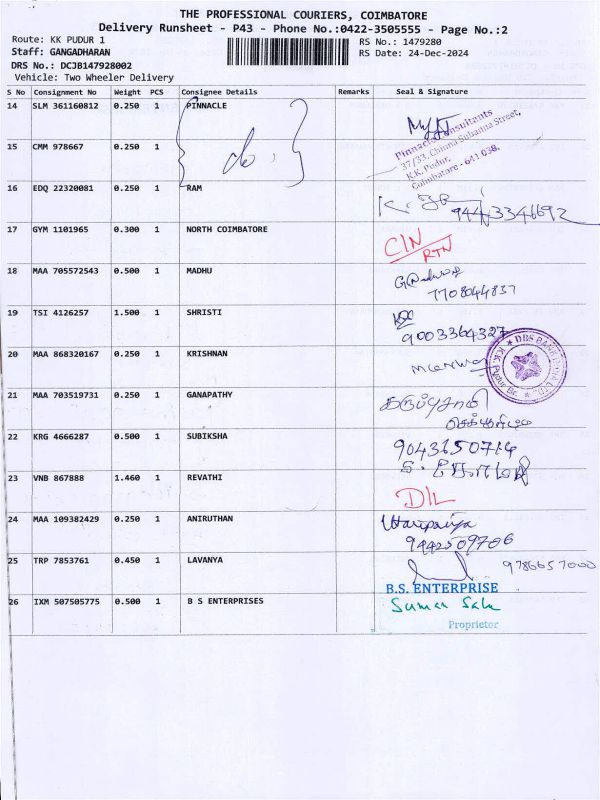 THE PROFESSIONAL COURIERS, COIMBATORE
Delivery Runsheet - P43 - Phone No.:0422-3505555 - Page No.:2
Route: KK PUDUR 1
RS No.: 1479280
Staff: GANGADHARAN
RS Date: 24-Dec-2024
DRS No.: DCJB147928002
Vehicle: Two Wheeler Delivery
S No Consignment No Weight PCS Consignee Details Remarks Seal & Signature
14 SLM 361160812 0.250 1 PINNACLE
Pinnacle Consultants
37/33, Chinna Subanna Street,
K.K. Pudur,
Coimbatore - 641 038.
15 CMM 978667 0.250 1 do.
16 EDQ 22320081 0.250 1 RAM
9443346692
17 GYM 1101965 0.300 1 NORTH COIMBATORE
CIN
RTN
18 MAA 705572543 0.500 1 MADHU
7708044837
19 TSI 4126257 1.500 1 SHRISTI
9003364327
20 MAA 868320167 0.250 1 KRISHNAN
DBS BANK
K.K. Pudur Br.
21 MAA 703519731 0.250 1 GANAPATHY
கருப்புசாமி
செக்யூரிட்டி
22 KRG 4666287 0.500 1 SUBIKSHA
9043650714
23 VNB 867888 1.460 1 REVATHI
D/L
24 MAA 109382429 0.250 1 ANIRUTHAN
9442509706
25 TRP 7853761 0.450 1 LAVANYA
9786657000
26 IXM 507505775 0.500 1 B S ENTERPRISES
B.S. ENTERPRISE
Suman Saha
Proprietor